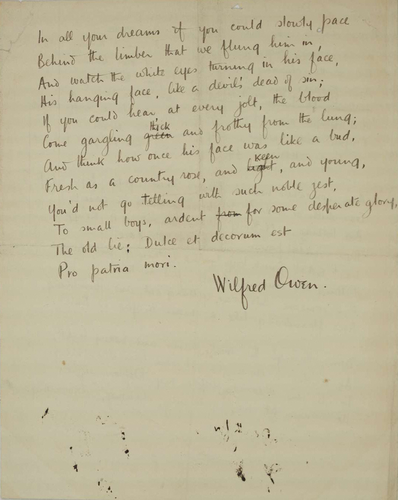 In all your dreams if you could slowly pace
Behind the limber that we flung him in,
And watch the white eyes turning in his face,
His hanging face, like a devil's dead of sin;
If you could hear, at every jolt, the blood
Come gargling green thick and frothy from the lung;
And think how once his face was like a bud,
Fresh as a country rose, and light keen, and young,
You'd not go telling with such noble zest,
To small boys, ardent from for some desperate glory,
The old lie: Dulce et decorum est
Pro patria mori.
Wilfred Owen.